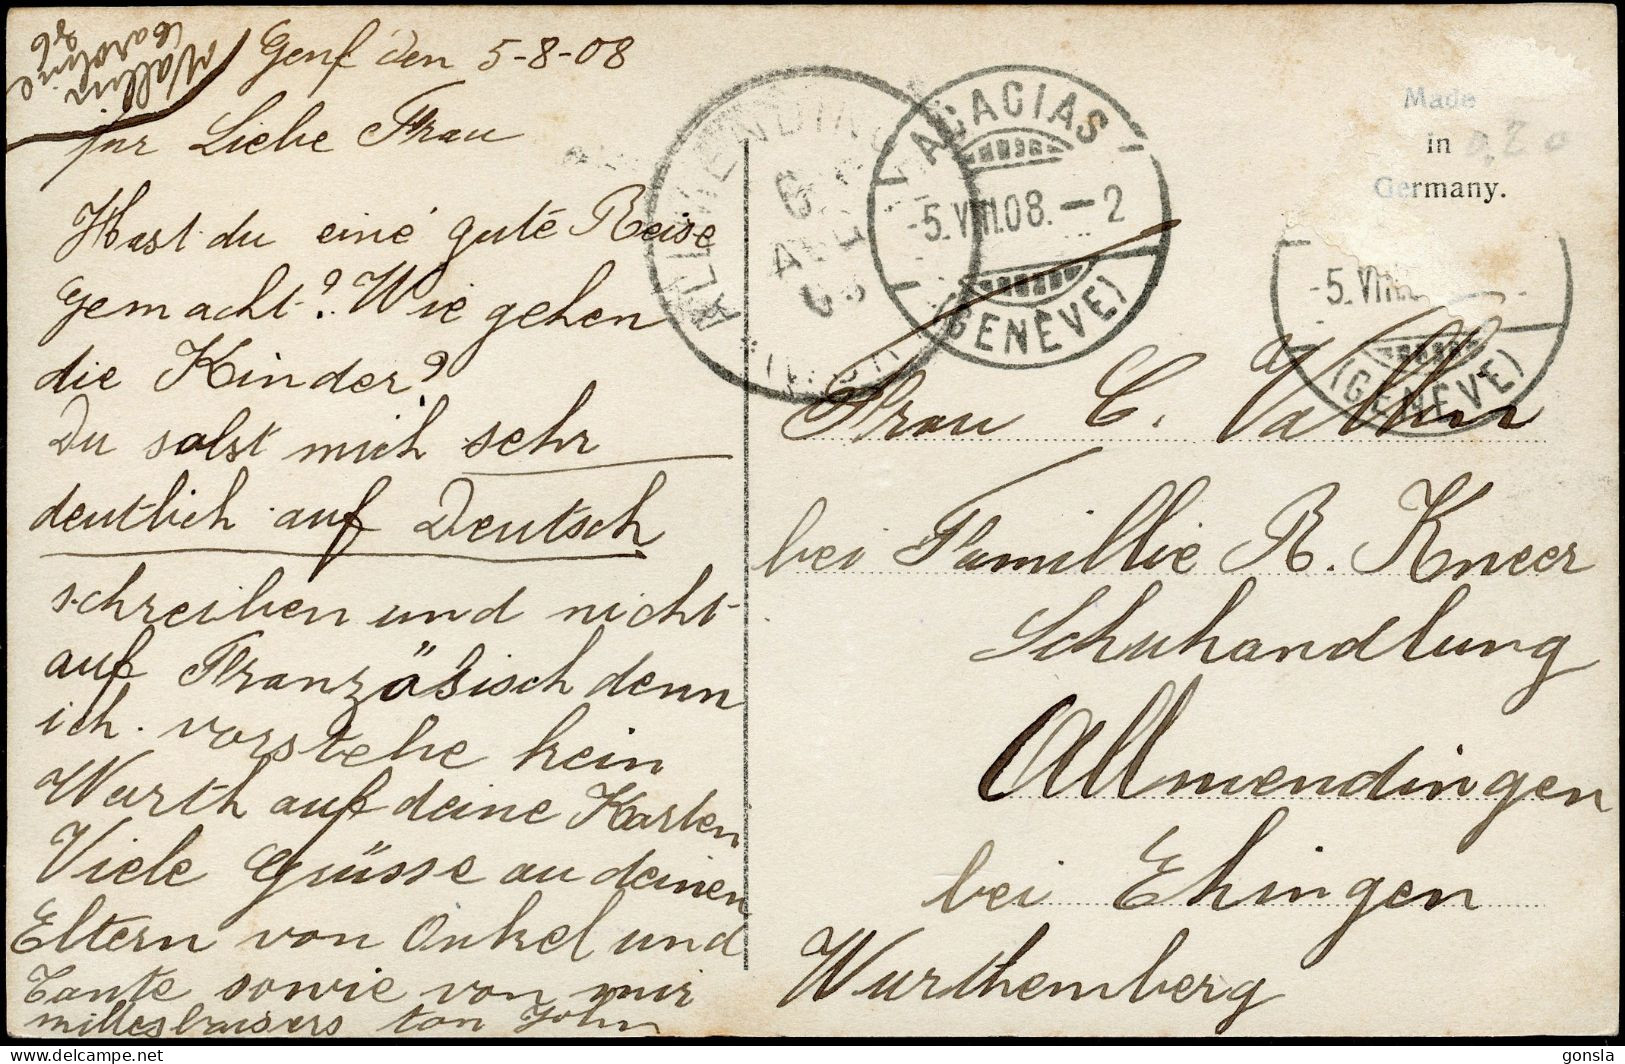 Genf den 5-8-08
für Liebe Frau
Hast du eine gute Reise
gemacht? Wie gehen
die Kinder?
Du solst mich sehr
deutlich auf Deutsch
schreiben und nicht
auf Französisch denn
ich vorstehe kein
Warth auf deine Karten
Viele Grüsse an deinen
Eltern von Onkel und
Tante sowie von mir
milles baisers ton John
Vallin
Caroline
ALLMENDING
6
AUG
ACACIAS
-5.VIII.08.-2
(GENÈVE)
Made
in
Germany.
0,20
-5.VIII
(GENÈVE)
Frau C. Vallin
bei Famillie R. Kneer
Schuhandlung
Allmendingen
bei Ehingen
Wurthemberg
gonsla